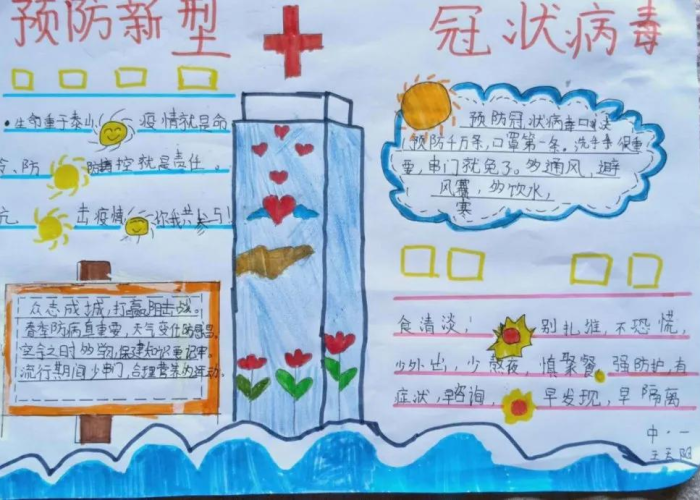 预防新型
冠状病毒
·生命重于泰山 疫情就是命
防 控就是责任
击疫情 你我共参与!
众志成城,打赢阻击战。
春季防病真重要,天气变化
流行期间少串门,合理营养
预防冠状病毒口诀
预防千万条,口罩第一条。洗手
要,串门就免了。多通风,避
风寒,多饮水,
食清淡; 别扎堆,不恐慌,
少外出,少熬夜,慎聚餐 强防护,有
症状,早咨询, 早发现,早隔离
中·一